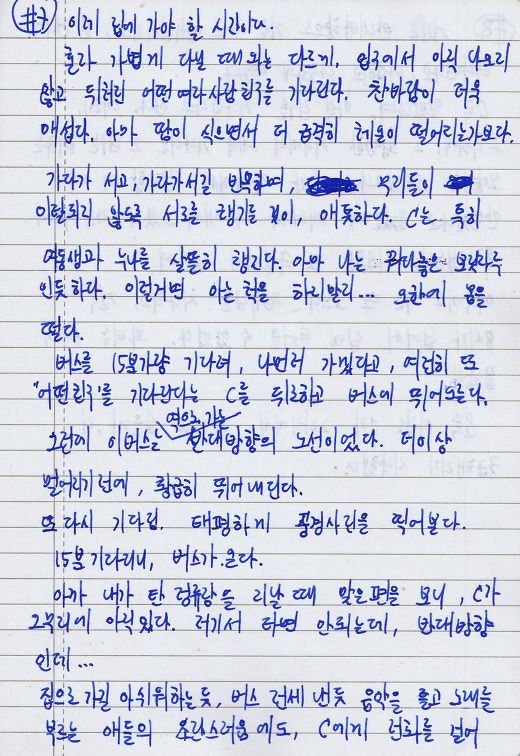 #7 이제 집에 가야 할 시간이다.
홀라 가볍게 다닐 때와는 다르게, 입구에서 아직 나오지
않고 뒤처진 어떤 여자사람친구를 기다린다. 찬바람이 더욱
매섭다. 아마 땀이 식으면서 더 급격히 체온이 떨어지는가보다.
가다가 서고, 가다가 서길 반복하며, 무리들의
이탈되지 않도록 서로를 챙기는 것이, 애틋하다. C는 특히
여동생과 누나를 살뜰히 챙긴다. 아마 나는 꿔다놓은 보릿자루
인듯 하다. 이럴거면 아는 척을 하지말지... 오한에 몸을
떨다.
버스를 15분가량 기다려, 나먼저 가겠다고, 여전히 또
"어떤 친구"를 기다린다는 C를 뒤로하고 버스에 뛰어오른다.
그런데 이버스는 역으로 가는 반대방향의 노선이었다. 더이상
멀어지기 전에, 황급히 뛰어내린다.
또 다시 기다림. 태평하게 풍경사진을 찍어본다.
15분 기다리니, 버스가 온다.
아까 내가 탄 정류장을 지날 때 맞은편을 보니, C가
그 무리에 아직 있다. 저기서 타면 안되는데, 반대방향
인데...
집으로 가길 아쉬워하는 듯, 버스 전세 낸듯 음악을 틀고 노래를
부르는 애들의 소란스러움에도, C에게 전화를 걸어